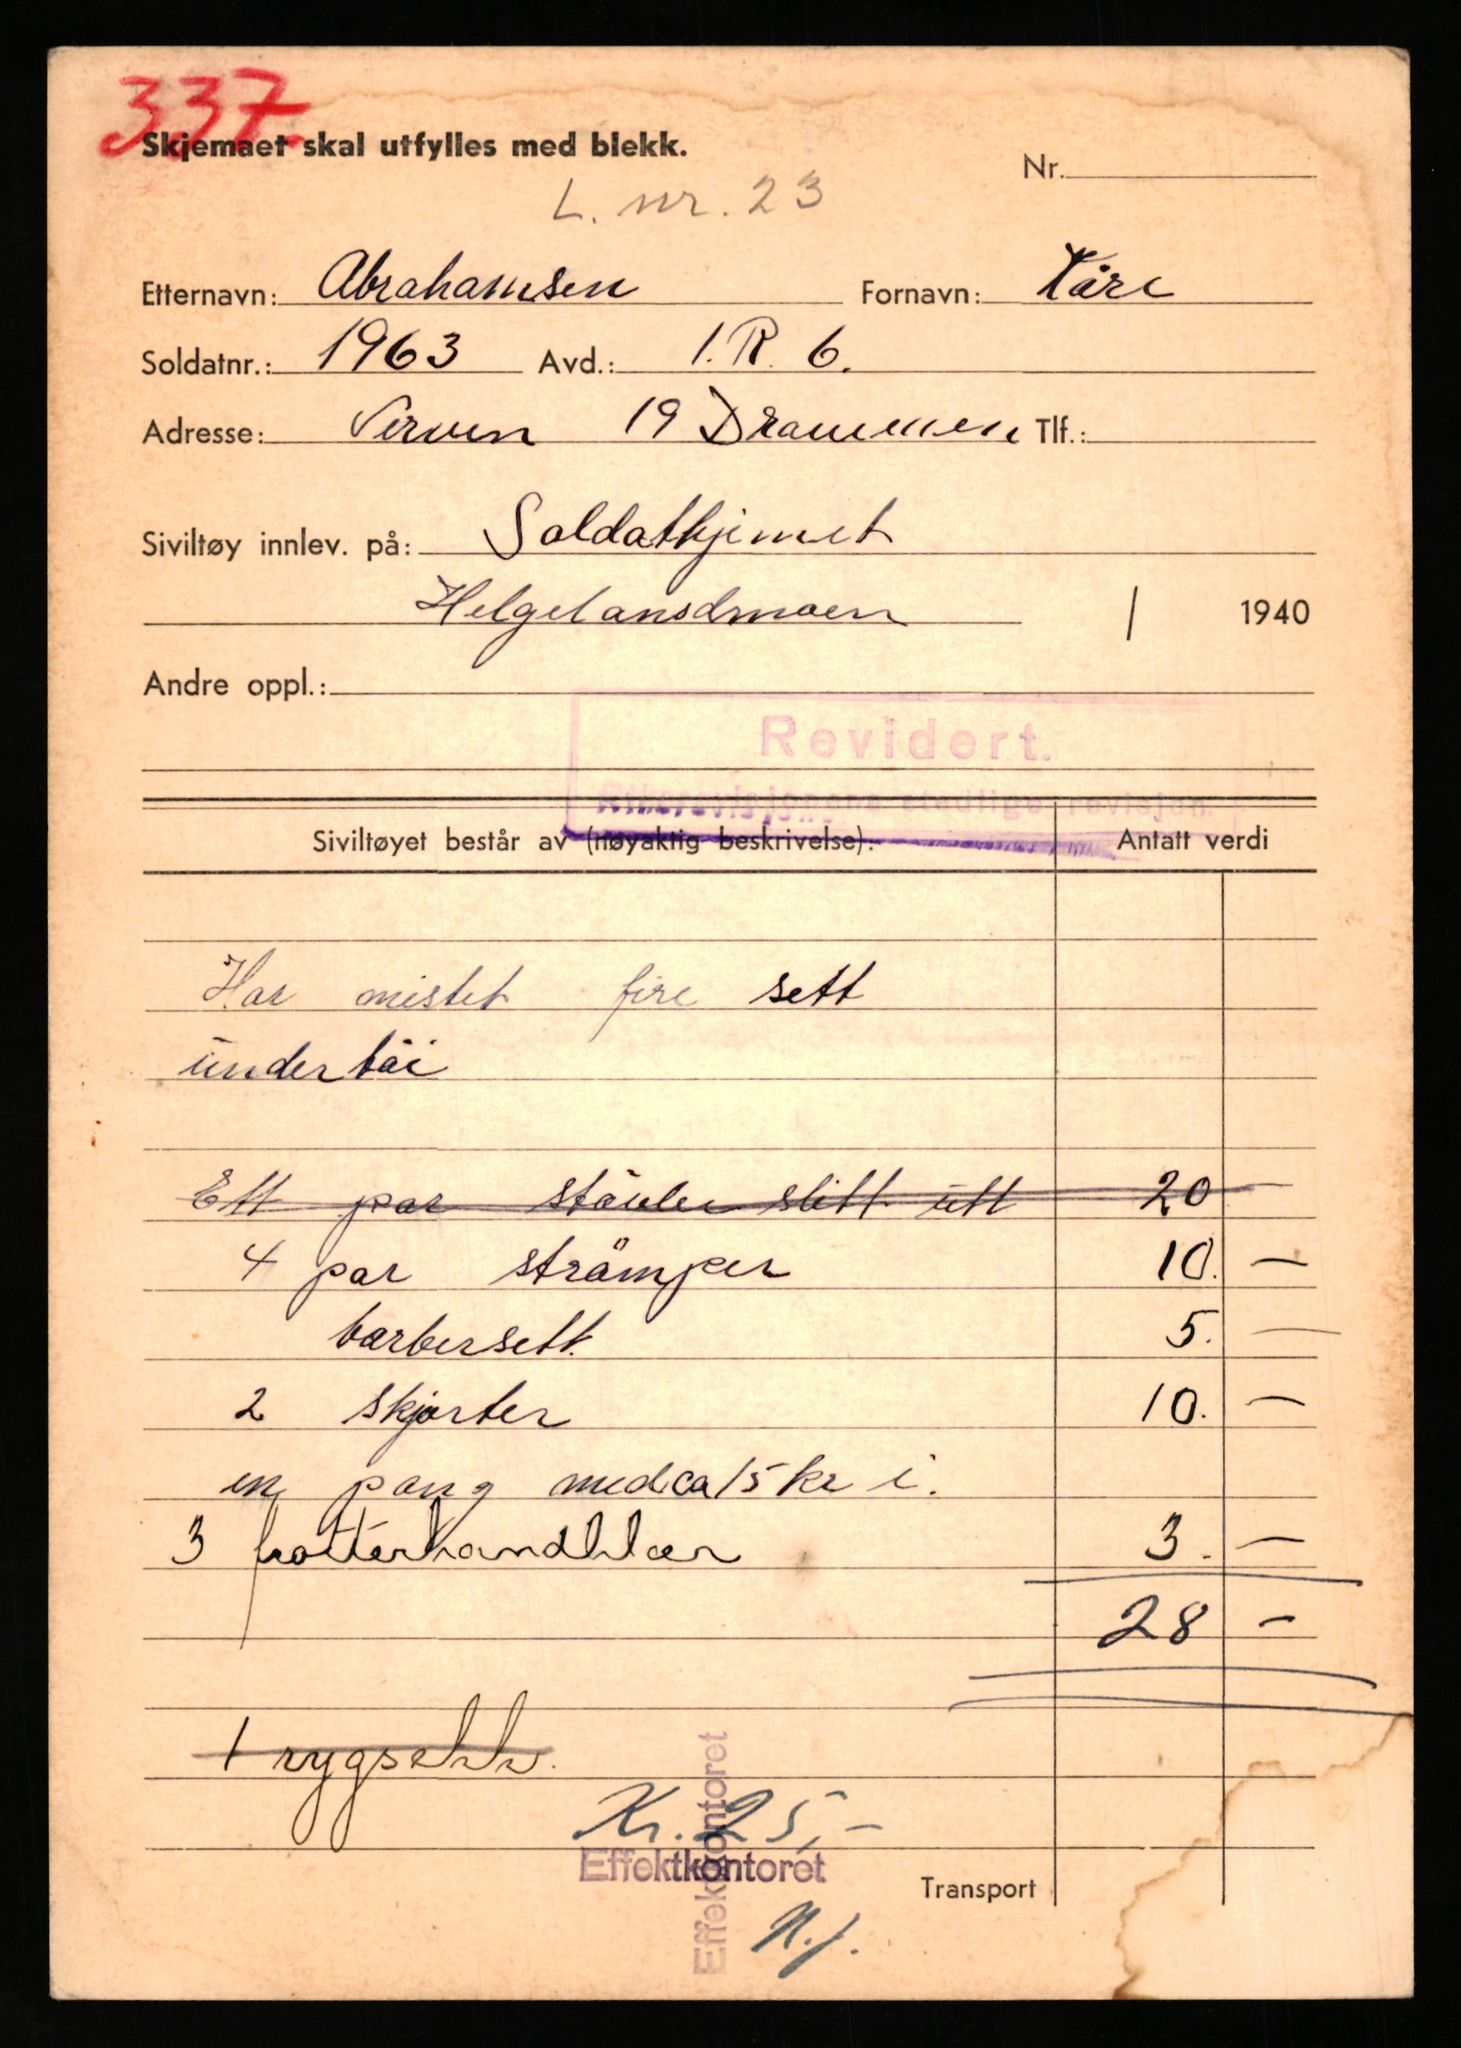 337.
Skjemaet skal utfylles med blekk.
Nr.
L. nr. 23
Etternavn: Abrahamsen Fornavn: Kåre
Soldatnr.: 1963 Avd.: I.R. 6.
Adresse: Verven 19 Drammen Tlf.:
Siviltøy innlev. på: Soldathjemet
Helgelansdmoen / 1940
Andre oppl.:
Revidert.
Riksrevisjonens stedlige revisjon.
Siviltøyet består av (nøyaktig beskrivelse): Antatt verdi
Har mistet fire sett
undertöi
Ett par stövler slitt utt 20 —
4 par strömper 10. —
barbersett. 5. —
2 skjorter 10. —
en pung med ca 15 kr i.
3 frotterhandklær 3. —
28 —
1 rygsekk.
Kr. 25,-
Effektkontoret
Effektkontoret
Transport
N.J.